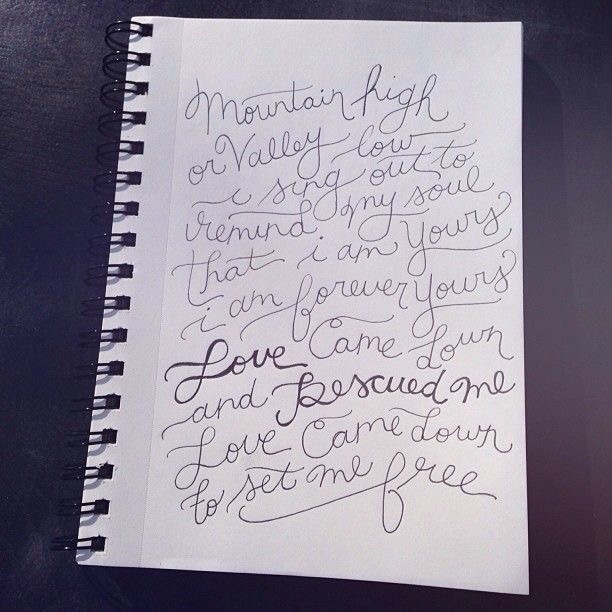 Mountain high
or Valley low
i sing out to
remind my soul
that i am Yours
i am forever Yours
Love Came Down
and Rescued me
Love Came Down
to set me free